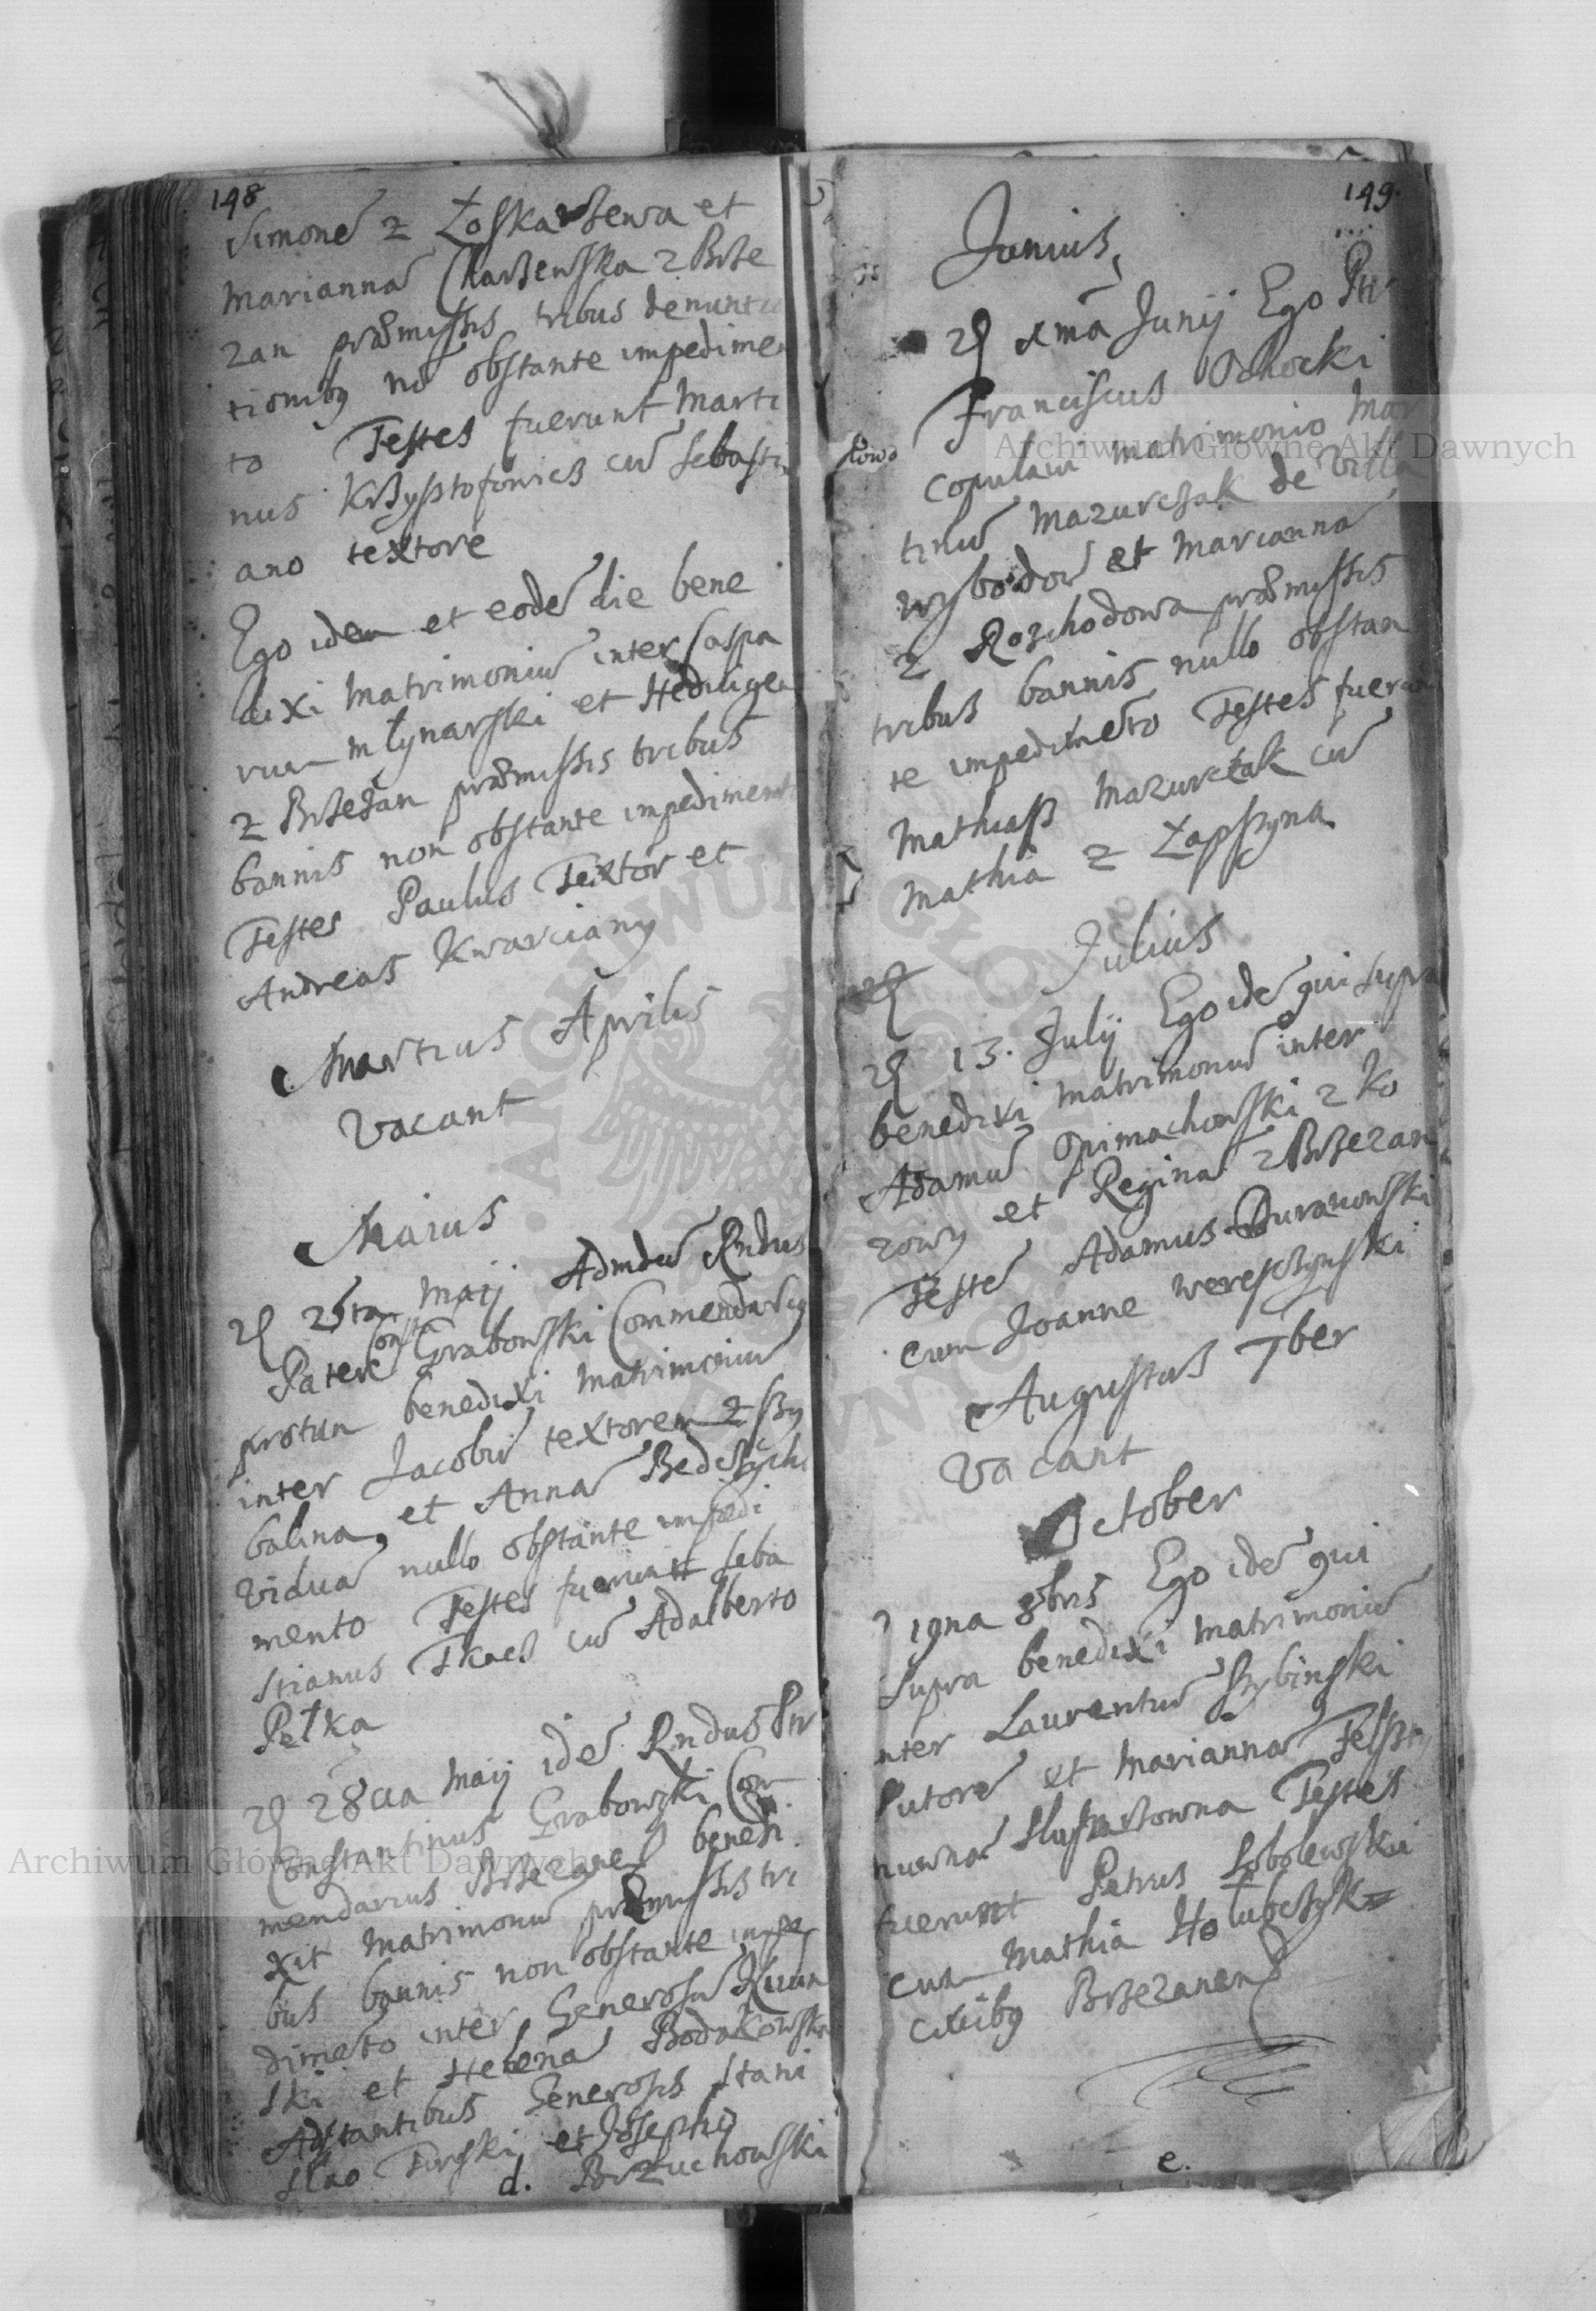 148
Simone͂ z Łoskarzewa et
Marianna͂ Charzewska z Brze
zan præmissis tribus denuntia
tionibq no͂ obstante impedimen
to Testes fuerunt Marti
nus Krzysztofowicz cu͂ Sebasti
ano textore
Ego idem et eode͂ die bene
dixi Matrimoniu͂ inter Caspa
rum Młynarski et Hedvigem
z Brzeżan præmissis tribus
bannis non obstante impedimento
Testes Paulus Textor et
Andreas Kwarciany
Martius Aprilis
Vacant
Maius
25ta Maij Admdu͂ Rndus
Pater Consta Grabowski Commendariq
protun benedixi Matrimoniu͂
inter Jacobu͂ textorem z Szy
balina, et Anna͂
Vidua͂ nullo obstante impedi
mento Testes fuerunt Seba
stianus Tkacz cu͂ Adalberto
Pełka
28va Maij ide͂ Rndus Ptr
Constantinus Grabowski Com
mendarius Brzezanen benedi
xit Matrimoniu͂ præmissis tri
bus bannis non obstante impe
dime͂to inter Generosu͂
ski et Helena͂ Bodakowska
Adstantibus Generosis Stani
slao Turski et Josepho
d. Brzuchowski
149.
Junius
xma Junij Ego Ptr
Franciscus Ochocki
copulavi matrimonio Mar
tinu͂ Mazurczak de Villa
Wybodow et Marianna͂
z Rozchodowa præmissis
tribus bannis nullo obstan
te impedime͂to Testes fuerunt
Mathiasz Mazurczak cu͂
Mathia z Łapszyna
Julius
13. Julij Ego ide͂ qui supra
benedixi matrimoniu͂ inter
Adamu͂ Opimachowski z Ko
zowy et Regina͂ z Brzezan
Teste͂ Adamus Duranowski
cum Joanne Wereszczynski
Augustus 7ber
Vacant
October
19na 8bris Ego ide͂ qui
supra benedixi matrimoniu͂
inter Laurentiu͂ Szybinski
Sutore͂ et Marianna͂
Testes
fuerunt Petrus Sobolewski
cum Mathia Hołubczyk
civibq Brzezanen
e.